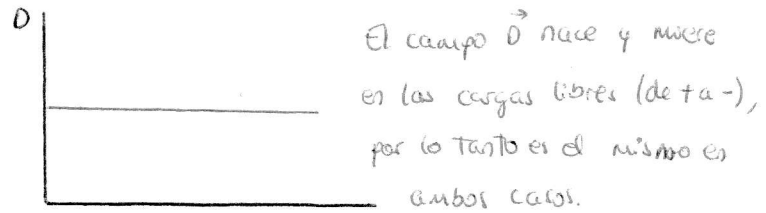 D
El campo D⃗ nace y muere
en las cargas libres (de + a -),
por lo tanto es el mismo en
ambos casos.